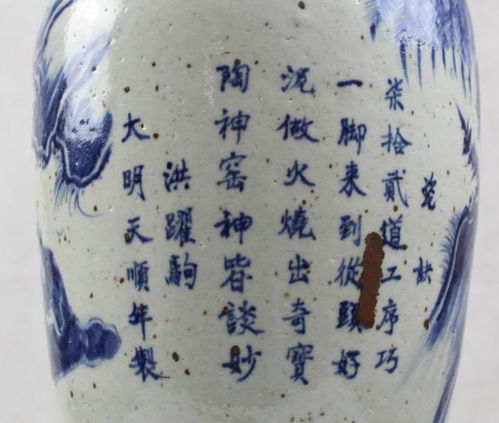 瓷訣
柒拾貳道工序巧
一脚来到從頭好
泥做火燒出奇寶
陶神窑神皆談妙
洪躍駒
大明天順年製